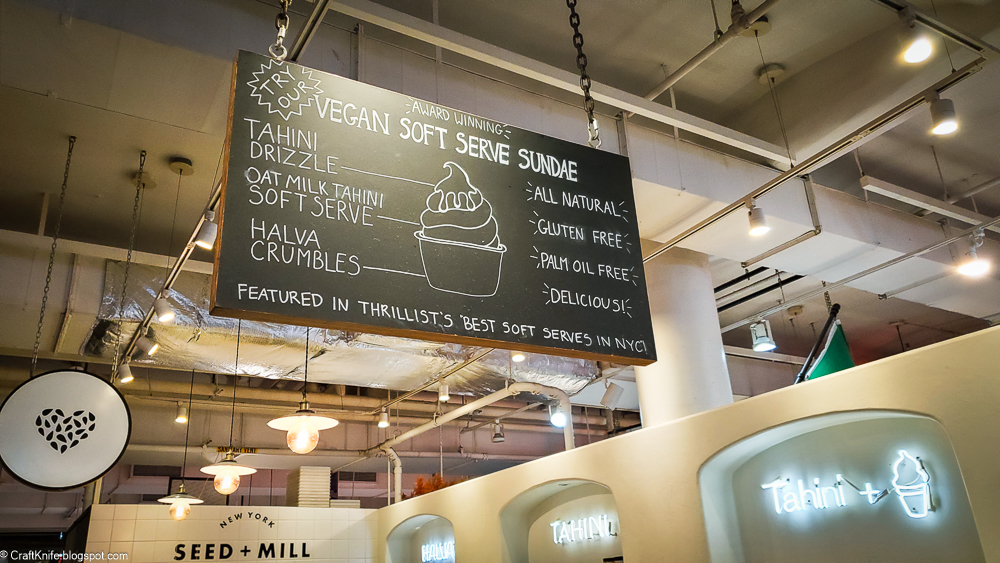 TRY
OUR
AWARD WINNING
VEGAN SOFT SERVE SUNDAE
TAHINI
DRIZZLE
OAT MILK TAHINI
SOFT SERVE
HALVA
CRUMBLES
ALL NATURAL
GLUTEN FREE
PALM OIL FREE
DELICIOUS!
FEATURED IN THRILLIST'S 'BEST SOFT SERVES IN NYC'
NEW YORK
SEED + MILL
TAHINI
Tahini +
© CraftKnife.blogspot.com